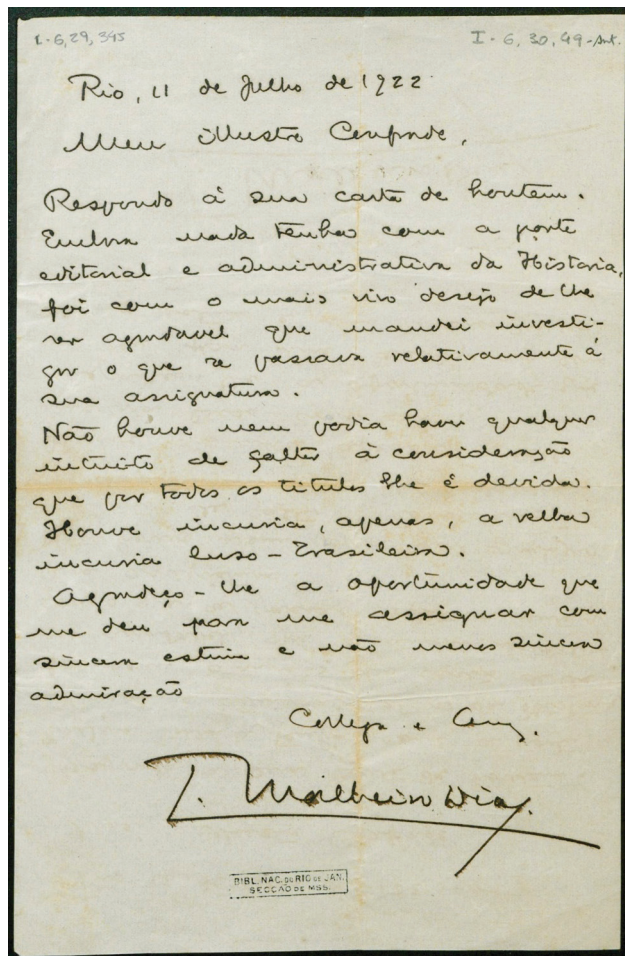 I-6,29,345
I-6,30,49-Ant.
Rio, 11 de Julho de 1922
Meu illustre Confrade,
Respondo á sua carta de hontem.
Embora nada tenha com a parte
editorial e administrativa da Historia,
foi com o mais vivo desejo de lhe
ser agradavel que mandei investi-
gar o que se passava relativamente á
sua assignatura.
Não houve nem podia haver qualquer
intuito de faltar à consideração
que por todos os titulos lhe é devida.
Houve incuria, apenas, a velha
incuria luso-brasileira.
Agradeço-lhe a oportunidade que
me deu para me assignar com
sincera estima e não menos sincera
admiração
Collega e
Malheiro Dias.
BIBL. NAC. DO RIO DE JAN.
SECÇÃO DE MSS.